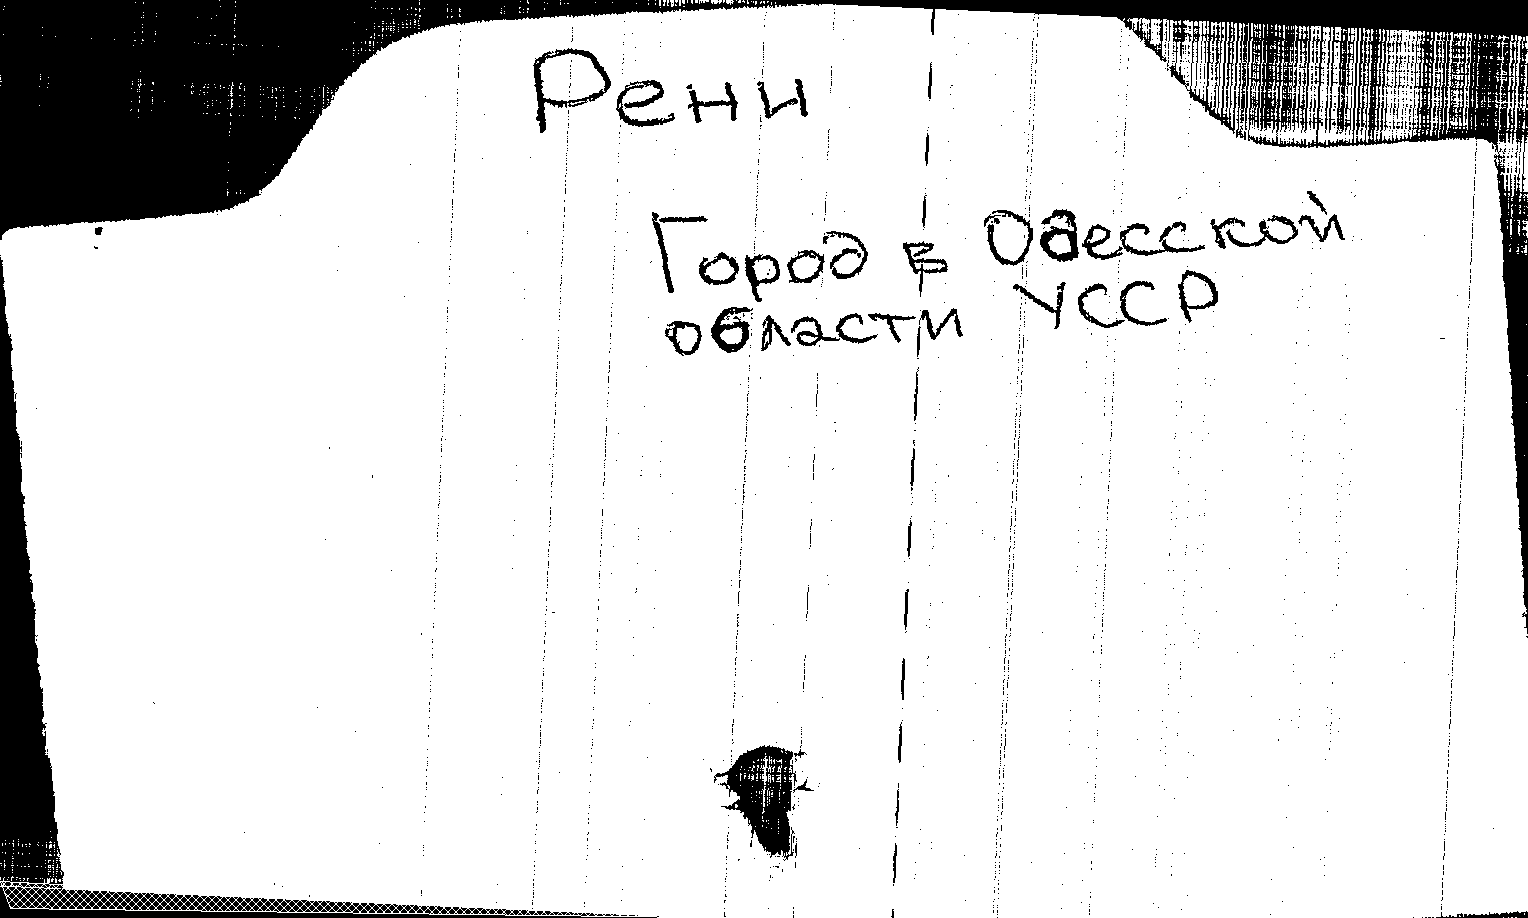 Рени
Город в Одесской
области УССР